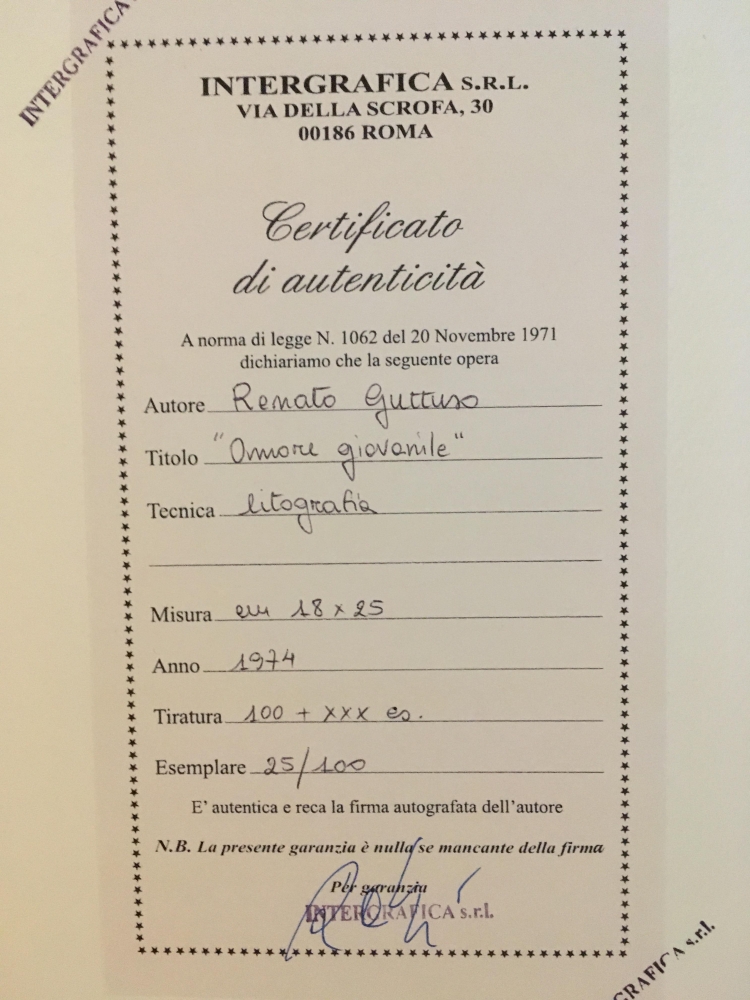 INTERGRAFICA
INTERGRAFICA S.R.L.
VIA DELLA SCROFA, 30
00186 ROMA
Certificato
di autenticità
A norma di legge N. 1062 del 20 Novembre 1971
dichiariamo che la seguente opera
Autore Renato Guttuso
Titolo "Amore giovanile"
Tecnica litografia
Misura cm 18 x 25
Anno 1974
Tiratura 100 + XXX es.
Esemplare 25/100
E' autentica e reca la firma autografata dell'autore
N.B. La presente garanzia è nulla se mancante della firma
Per garanzia
INTERGRAFICA s.r.l.
GRAFICA s.r.l.